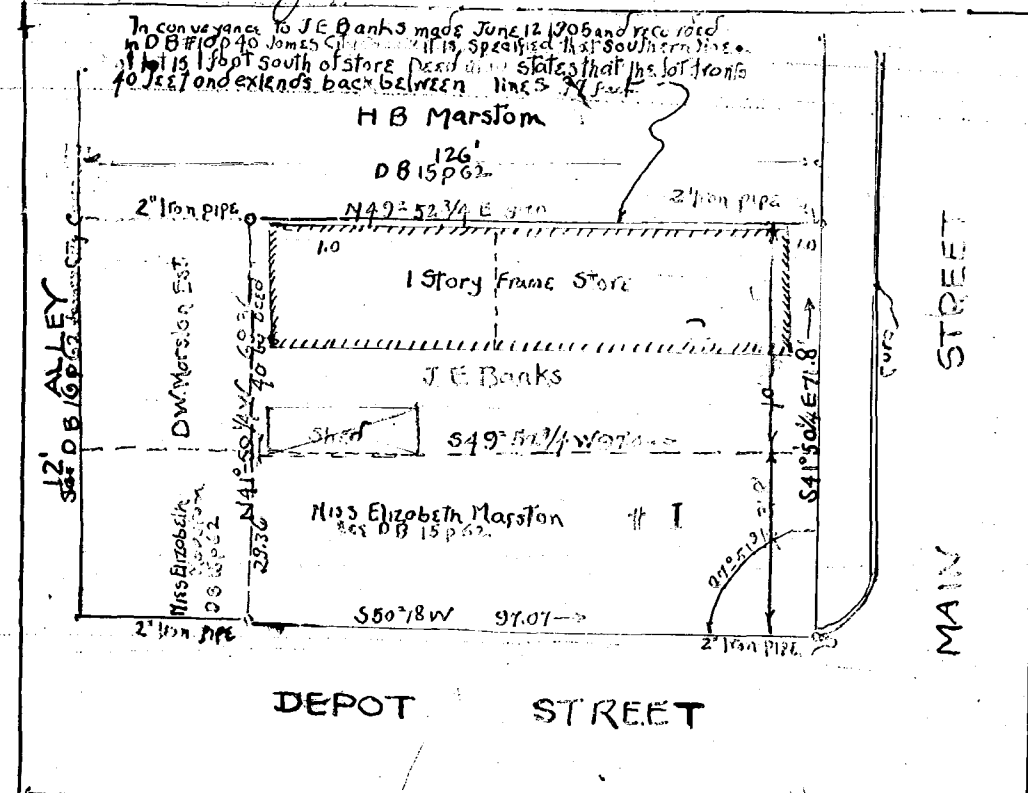 In conveyance to J E Banks made June 12 1905 and recorded
in DB #10 p 40 James City it is specified that southern line
of lot is 1 foot south of store Deed states that the lot fronts
40 feet and extends back between lines
H B Marstom
126'
D B 15 p 62
2" Iron pipe
N 49° 52 3/4 E
2" Iron pipe
1.0
1.0
1 Story Frame Store
J. E Banks
Shed
S 49° 52 3/4 W
12' ALLEY
See D B 16 p 62 James City C
D.W. Marston Est
N 41° 50 1/4 W
40 by deed
S 41° 50 1/4 E 71.8'
Curb
MAIN STREET
Miss Elizabeth
DB 15 p 62
29.36
Miss Elizabeth Marston # I
See D B 15 p 62
S 50° 18 W 97.07
2" Iron pipe
2" Iron pipe
DEPOT STREET